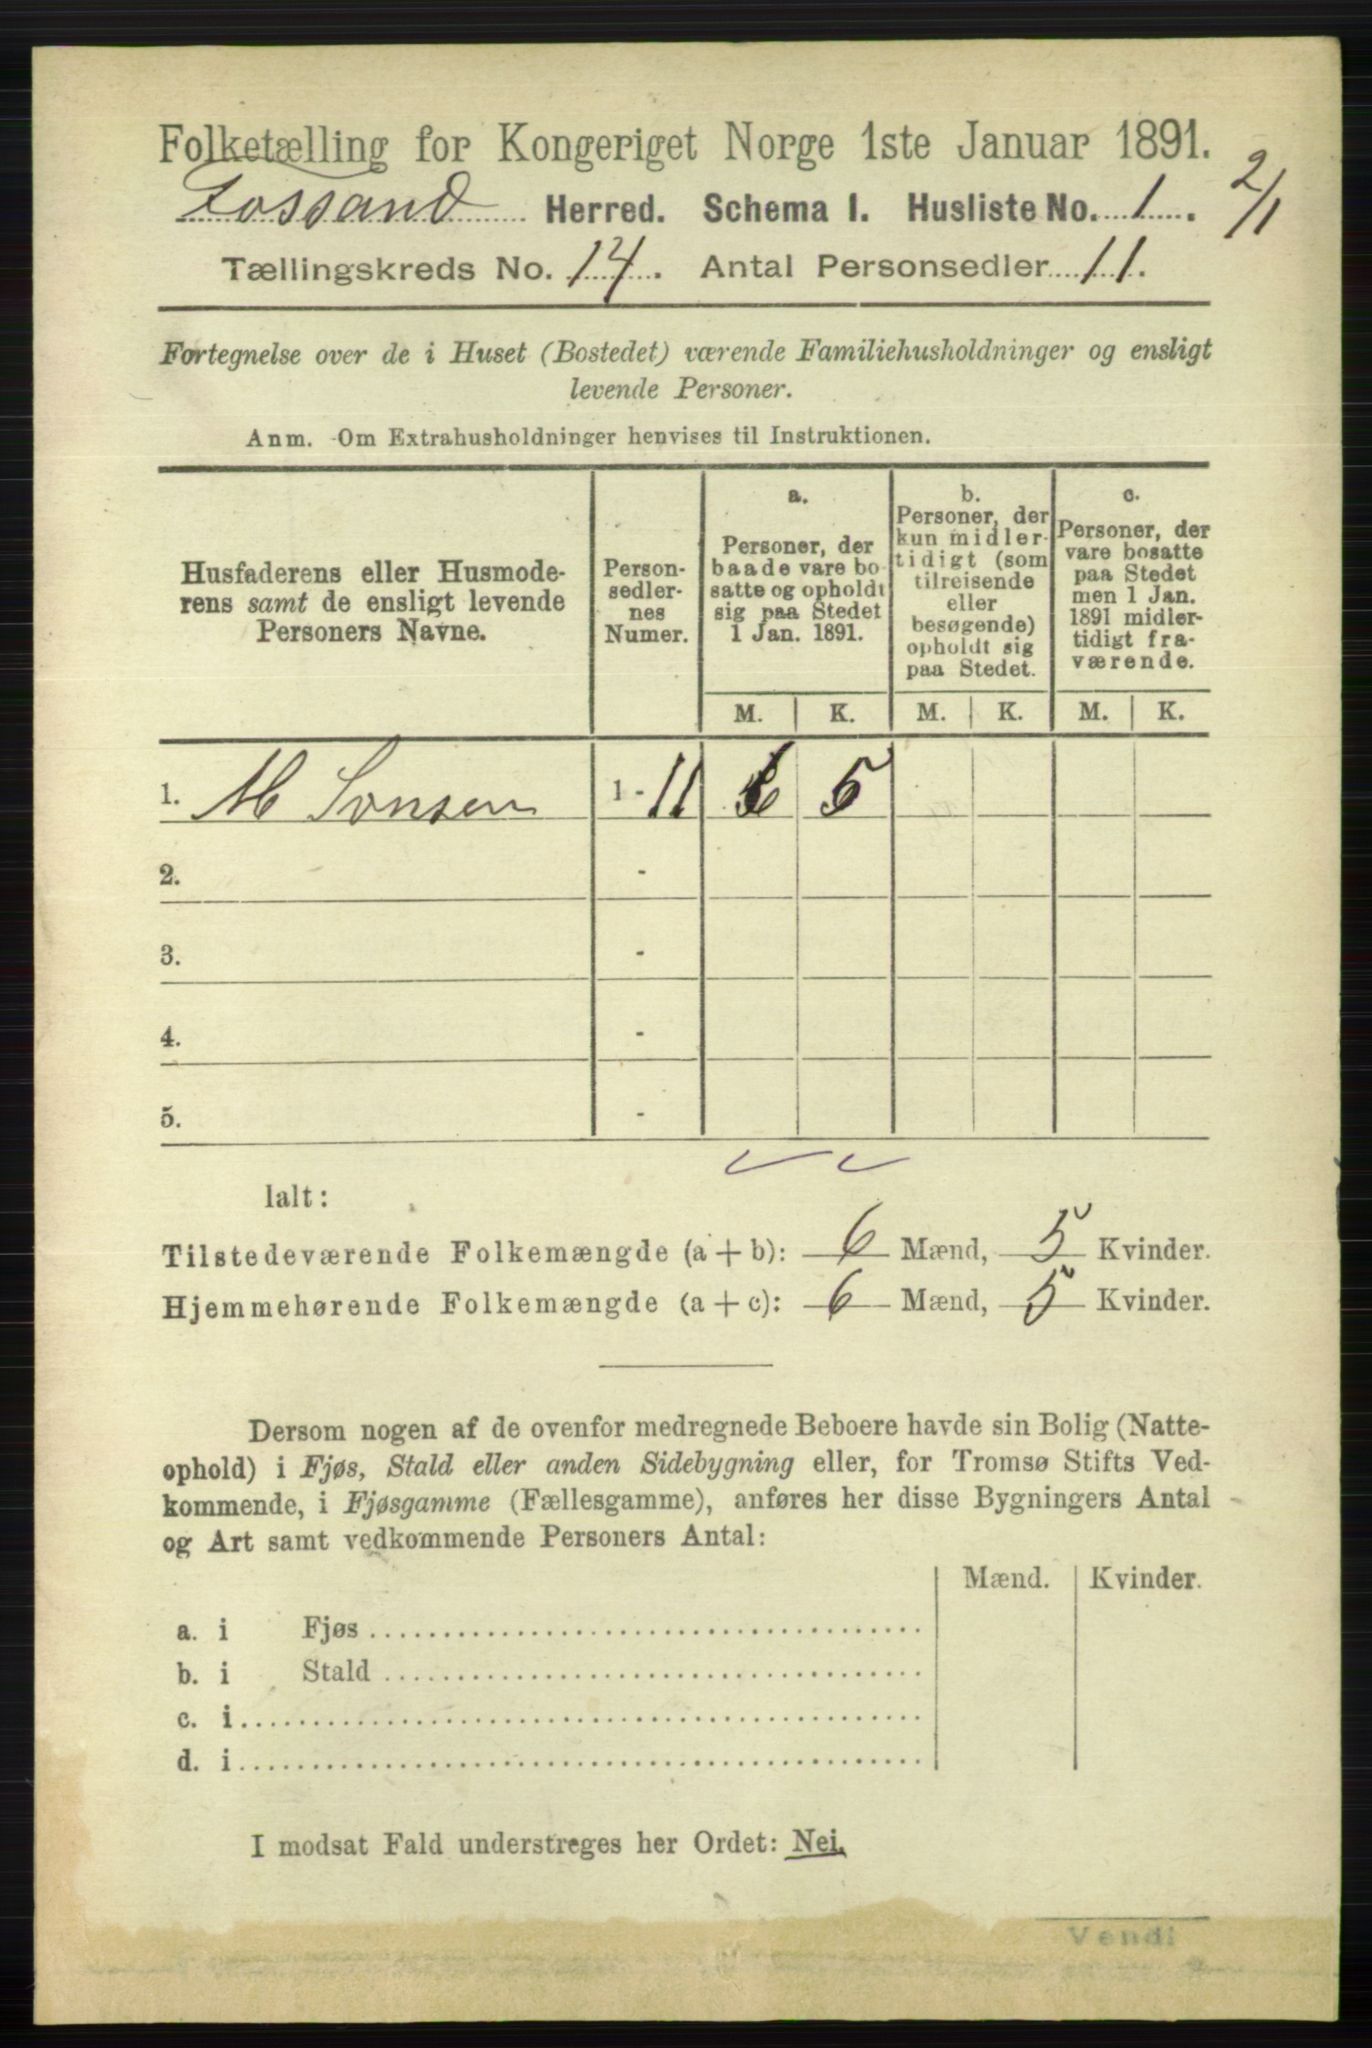 Folketælling for Kongeriget Norge 1ste Januar 1891.
Fossand Herred. Schema I. Husliste No. 1. 2/1
Tællingskreds No. 14. Antal Personsedler 11.
Fortegnelse over de i Huset (Bostedet) værende Familiehusholdninger og ensligt
levende Personer.
Anm. Om Extrahusholdninger henvises til Instruktionen.
Husfaderens eller Husmode-
rens samt de ensligt levende
Personers Navne.
Person-
sedler-
nes
Numer.
a.
Personer, der
baade vare bo-
satte og opholdt
sig paa Stedet
1 Jan. 1891.
b.
Personer, der
kun midler-
tidigt (som
tilreisende
eller
besøgende)
opholdt sig
paa Stedet.
c.
Personer, der
vare bosatte
paa Stedet
men 1 Jan.
1891 midler-
tidigt fra-
værende.
M. K. M. K. M. K.
1. M 1 - 11 6 5
2. -
3. -
4. -
5. -
Ialt:
Tilstedeværende Folkemængde (a + b): 6 Mænd, 5 Kvinder.
Hjemmehørende Folkemængde (a + c): 6 Mænd, 5 Kvinder.
Dersom nogen af de ovenfor medregnede Beboere havde sin Bolig (Natte-
ophold) i Fjøs, Stald eller anden Sidebygning eller, for Tromsø Stifts Ved-
kommende, i Fjøsgamme (Fællesgamme), anføres her disse Bygningers Antal
og Art samt vedkommende Personers Antal:
Mænd. Kvinder.
a. i Fjøs
b. i Stald
c. i
d. i
I modsat Fald understreges her Ordet: Nei.
Vendi